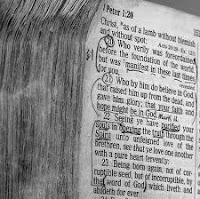 1 Peter 1:20
Christ, as of a lamb without blemish
and without spot:
20 Who verily was foreordained
before the foundation of the world,
but was manifest in these last times
for you,
21 Who by him do believe in God
that raised him up from the dead, and
gave him glory; that your faith and
hope might be in God
22 Seeing ye have purified your
souls in obeying the truth through the
Spirit unto unfeigned love of the
brethren, see that ye love one another
with a pure heart fervently:
23 Being born again, not of cor-
ruptible seed, but of incorruptible, by
the word of God, which liveth and
abideth for ever.